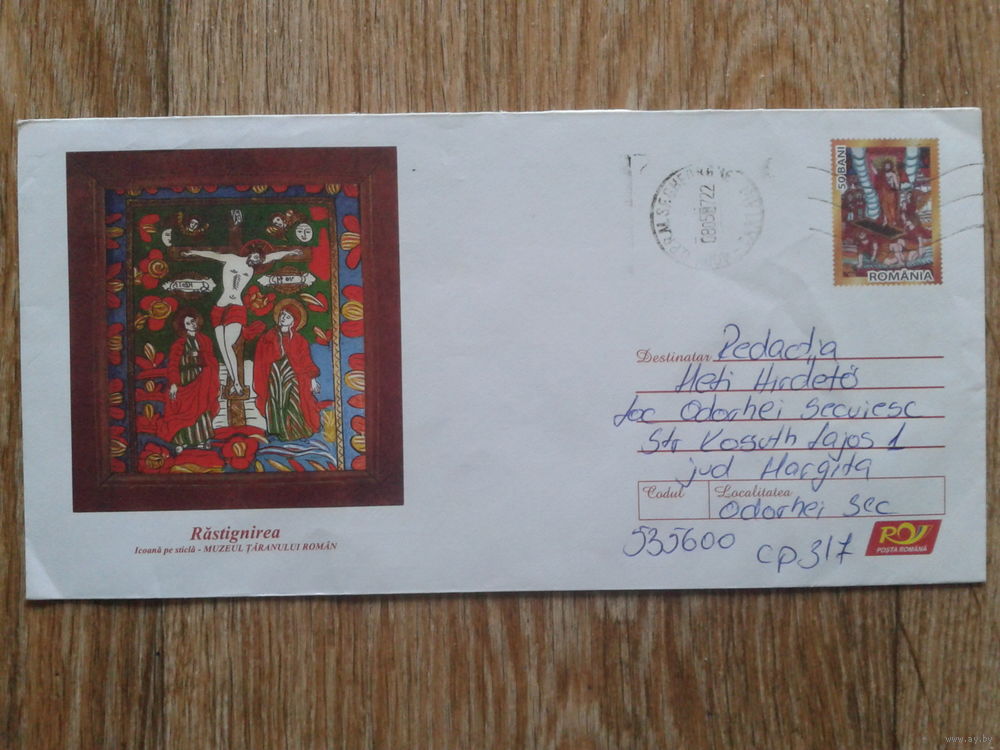 50 BANI
ROMÂNIA
Destinatar Redacția
Heti Hirdető
loc Odorhei Secuiesc
Str Kossuth Lajos 1
jud Hargita
Codul
Localitatea
Odorhei Sec
535600
CP 317
POȘTA ROMÂNĂ
Răstignirea
Icoană pe sticlă - MUZEUL ȚĂRANULUI ROMÂN
www.ay.by